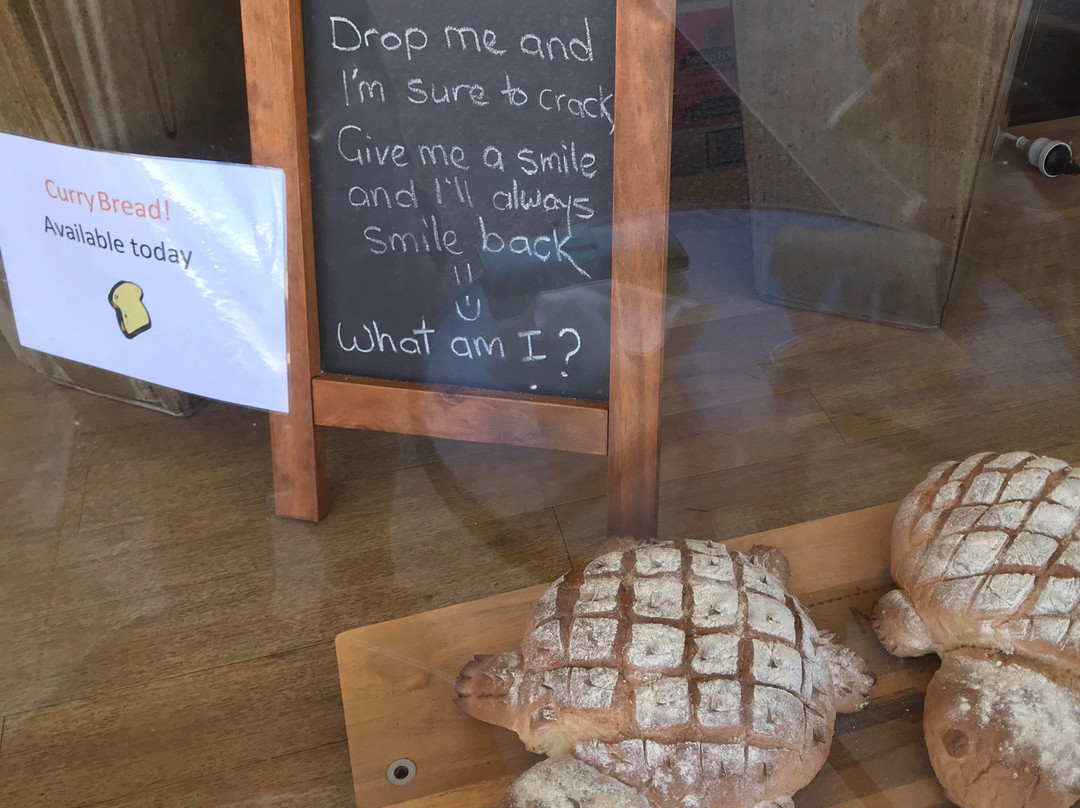 Drop me and
I'm sure to crack
Give me a smile
and I'll always
smile back
What am I?
Curry Bread!
Available today